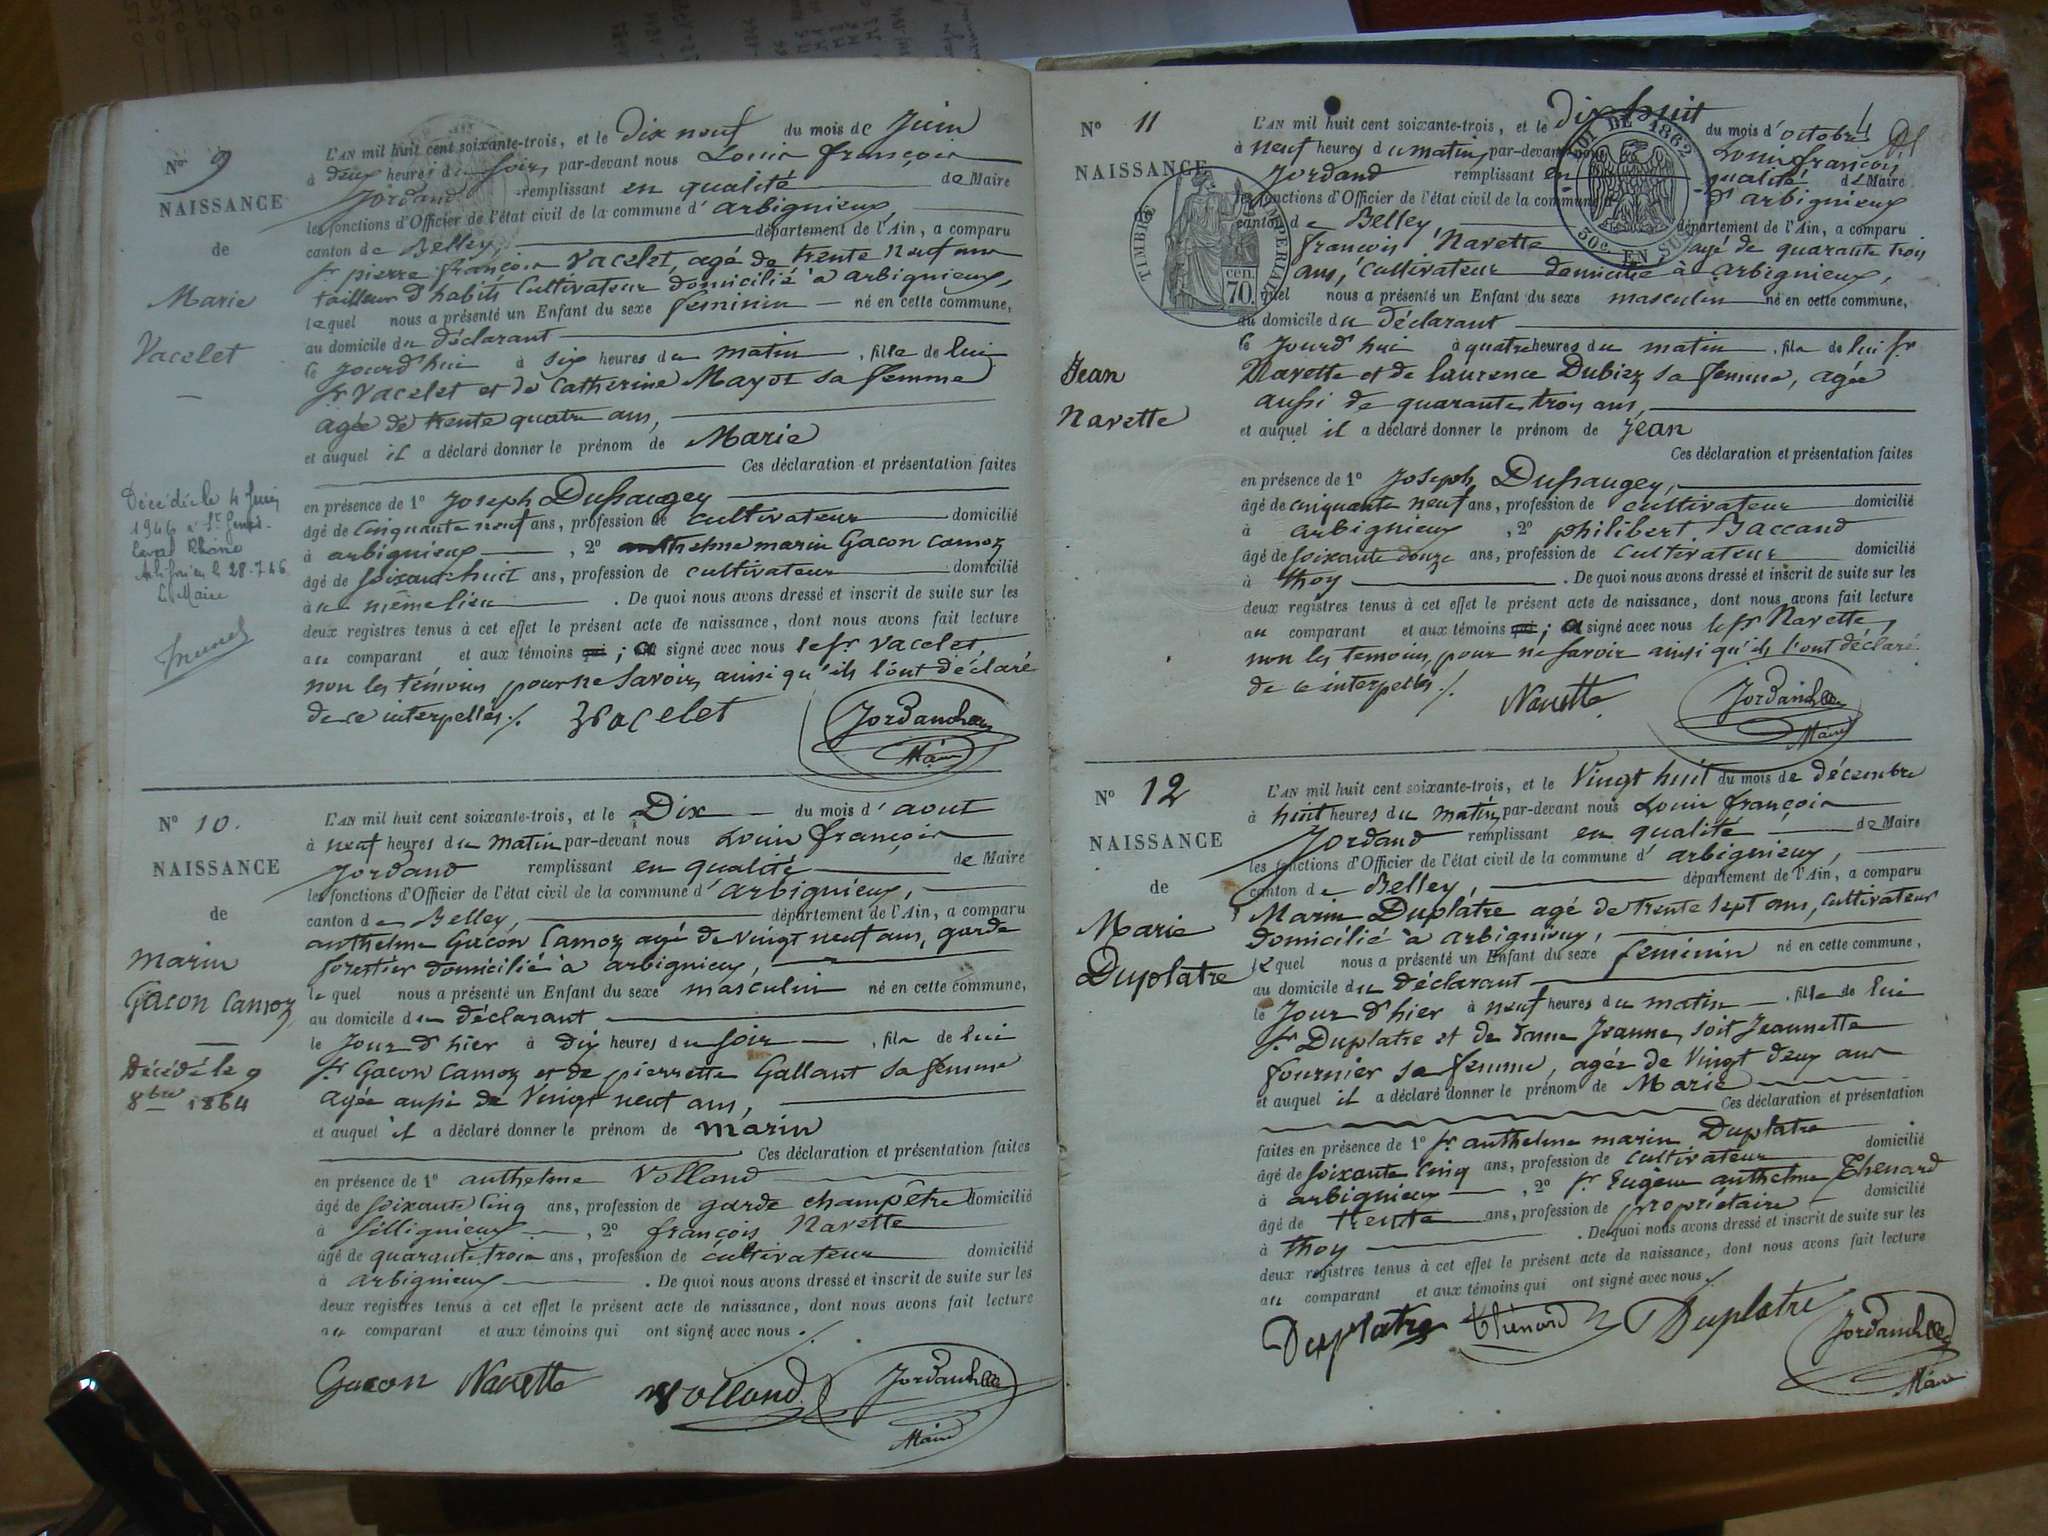 Nº 9
NAISSANCE
de
Marie
Vacelet
Décédée le 4 Juin
1946 à St Genis
Laval Rhône
Arbignieu le 28.7.46
Le Maire
L'AN mil huit cent soixante-trois, et le Dix neuf du mois de Juin
à deux heures du soir, par-devant nous Louis françois
Jordand remplissant en qualité de Maire
les fonctions d'Officier de l'état civil de la commune d'arbignieux,
canton de Belley, département de l'Ain, a comparu
sr pierre françois Vacelet, agé de trente neuf ans
tailleur d'habits Cultivateur domicilié à arbignieux,
lequel nous a présenté un Enfant du sexe feminin né en cette commune,
au domicile du déclarant
le jourd'hui à six heures du matin, fille de lui
sr Vacelet et de Catherine Mayot sa femme
agée de trente quatre ans,
et auquel il a déclaré donner le prénom de Marie
Ces déclaration et présentation faites
en présence de 1º Joseph Dufsaugey
âgé de Cinquante neuf ans, profession de cultivateur domicilié
à arbignieux, 2º anthelme marin Gacon Camoz
âgé de soixante huit ans, profession de cultivateur domicilié
à un même lieu. De quoi nous avons dressé et inscrit de suite sur les
deux registres tenus à cet effet le présent acte de naissance, dont nous avons fait lecture
au comparant et aux témoins qui; a signé avec nous le sr Vacelet,
non les témoins pour ne savoir, ainsi qu'ils l'ont déclaré
de ce interpellés ./.
Vacelet Jordand
Maire
Nº 10.
NAISSANCE
de
Marin
Gacon Camoz
Décédé le 9
8bre 1864
L'AN mil huit cent soixante-trois, et le Dix du mois d'aout
à neuf heures du matin par-devant nous Louis françois
Jordand remplissant en qualité de Maire
les fonctions d'Officier de l'état civil de la commune d'arbignieux,
canton de Belley, département de l'Ain, a comparu
anthelme Gacon Camoz agé de vingt neuf ans, garde
forestier domicilié à arbignieux,
lequel nous a présenté un Enfant du sexe masculin né en cette commune,
au domicile du déclarant
le jour d'hier à dix heures du soir, fils de lui
sr Gacon Camoz et de pierrette Gallant sa femme
agée aussi de Vingt neuf ans,
et auquel il a déclaré donner le prénom de Marin
Ces déclaration et présentation faites
en présence de 1º anthelme Volland
âgé de soixante cinq ans, profession de garde champêtre domicilié
à Sillignieux, 2º françois Navette
âgé de quarante trois ans, profession de cultivateur domicilié
à arbignieux. De quoi nous avons dressé et inscrit de suite sur les
deux registres tenus à cet effet le présent acte de naissance, dont nous avons fait lecture
au comparant et aux témoins qui ont signé avec nous ./.
Gacon Navette Volland Jordand
Maire
Nº 11
NAISSANCE
Jean
Navette
TIMBRE IMPÉRIAL
cen.
70.
LOI DE 1862
50c. EN SUS
L'AN mil huit cent soixante-trois, et le dix huit du mois d'octobre
à neuf heures du matin, par-devant nous Louis françois
Jordand remplissant en qualité de Maire
les fonctions d'Officier de l'état civil de la commune d'arbignieux
canton de Belley département de l'Ain, a comparu
françois Navette agé de quarante trois
ans, cultivateur domicilié à arbignieux,
quel nous a présenté un Enfant du sexe masculin né en cette commune,
au domicile du déclarant
le jourd'hui à quatre heures du matin, fils de lui sr
Navette et de laurence Dubiez sa femme, agée
aussi de quarante trois ans,
et auquel il a déclaré donner le prénom de Jean
Ces déclaration et présentation faites
en présence de 1º Joseph Dufsaugey,
âgé de cinquante neuf ans, profession de cultivateur domicilié
à arbignieux, 2º philibert Baccand
âgé de soixante douze ans, profession de cultivateur domicilié
à thoy. De quoi nous avons dressé et inscrit de suite sur les
deux registres tenus à cet effet le présent acte de naissance, dont nous avons fait lecture
au comparant et aux témoins qui; a signé avec nous le sr Navette,
non les temoins, pour ne savoir ainsi qu'ils l'ont déclaré
de ce interpellés ./.
Navette Jordand
Maire
Nº 12
NAISSANCE
de
Marie
Duplatre
L'AN mil huit cent soixante-trois, et le Vingt huit du mois de décembre
à huit heures du matin, par-devant nous Louis françois
Jordand remplissant en qualité de Maire
les fonctions d'Officier de l'état civil de la commune d'arbignieux,
canton de Belley, département de l'Ain, a comparu
Marin Duplatre agé de trente sept ans, cultivateur
domicilié à arbignieux,
lequel nous a présenté un Enfant du sexe feminin né en cette commune,
au domicile du déclarant
le jour d'hier à neuf heures du matin, fille de lui
sr Duplatre et de dame Jeanne, soit Jeannette
fournier sa femme, agée de Vingt deux ans
et auquel il a déclaré donner le prénom de Marie
Ces déclaration et présentation
faites en présence de 1º sr anthelme marin Duplatre
âgé de soixante cinq ans, profession de cultivateur domicilié
à arbignieux, 2º sr Eugène anthelme Thenard
âgé de trente ans, profession de propriétaire domicilié
à thoy. De quoi nous avons dressé et inscrit de suite sur les
deux registres tenus à cet effet le présent acte de naissance, dont nous avons fait lecture
au comparant et aux témoins qui ont signé avec nous ./.
Duplatre Thénard Duplatre Jordand
Maire